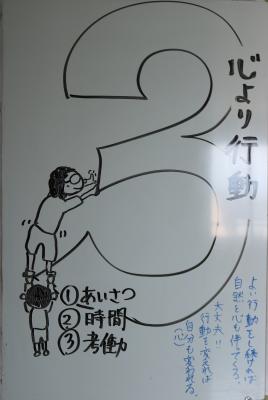 3
心より行動
①あいさつ
②時間
③考働
よい行動をし続ければ
自然と心も伴ってくる。
大丈夫!!
行動を変えれば
自分も変われる。
(心)